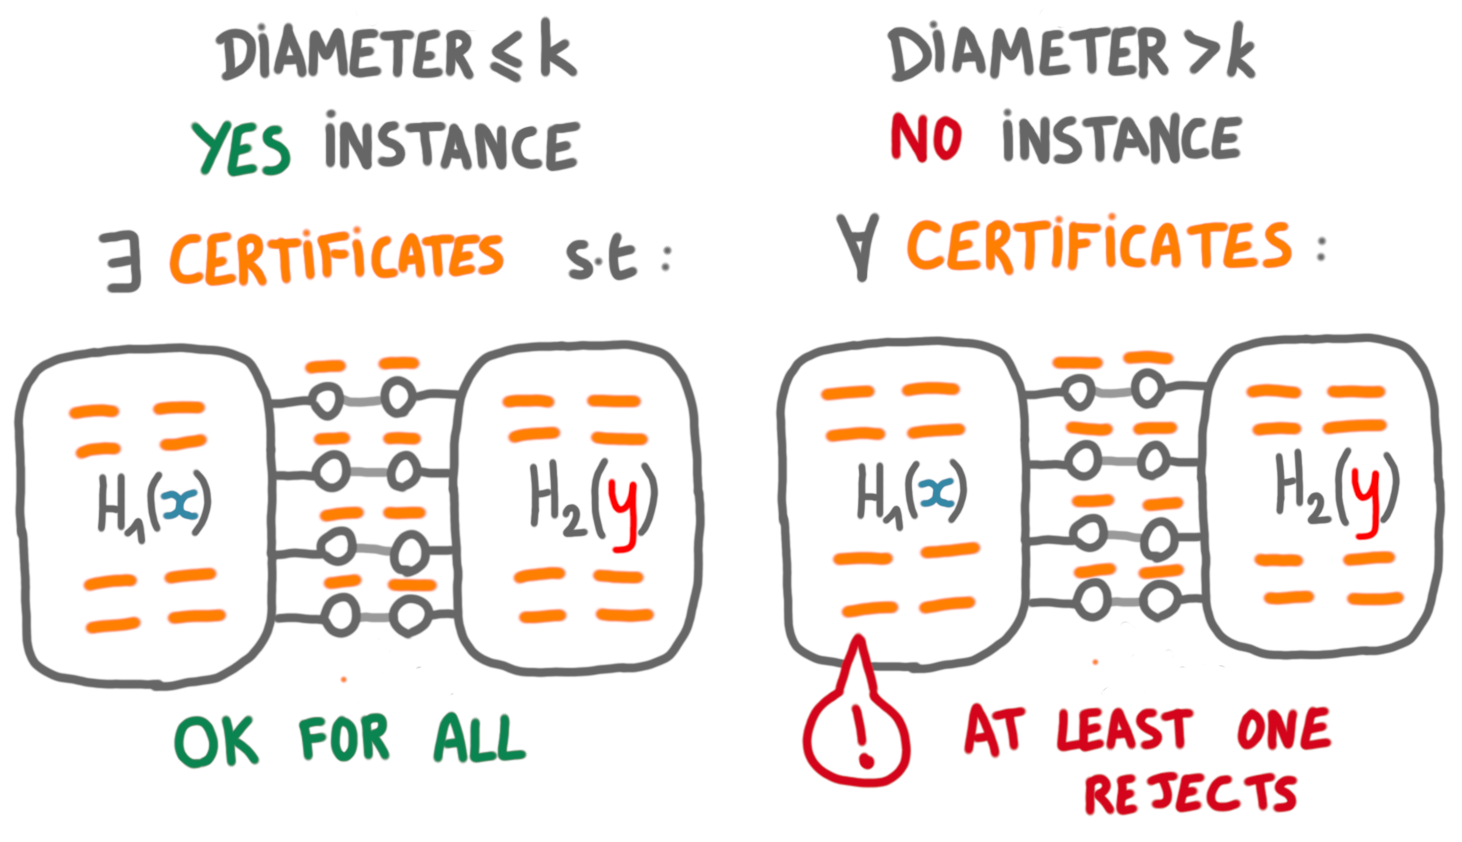 DiAMETER ⩽ k
YES iNSTANCE
∃ CERTiFiCATES s.t :
H₁(x)
H₂(y)
OK FOR ALL
DiAMETER > k
NO iNSTANCE
∀ CERTiFiCATES :
H₁(x)
H₂(y)
!
AT LEAST ONE
REJECTS